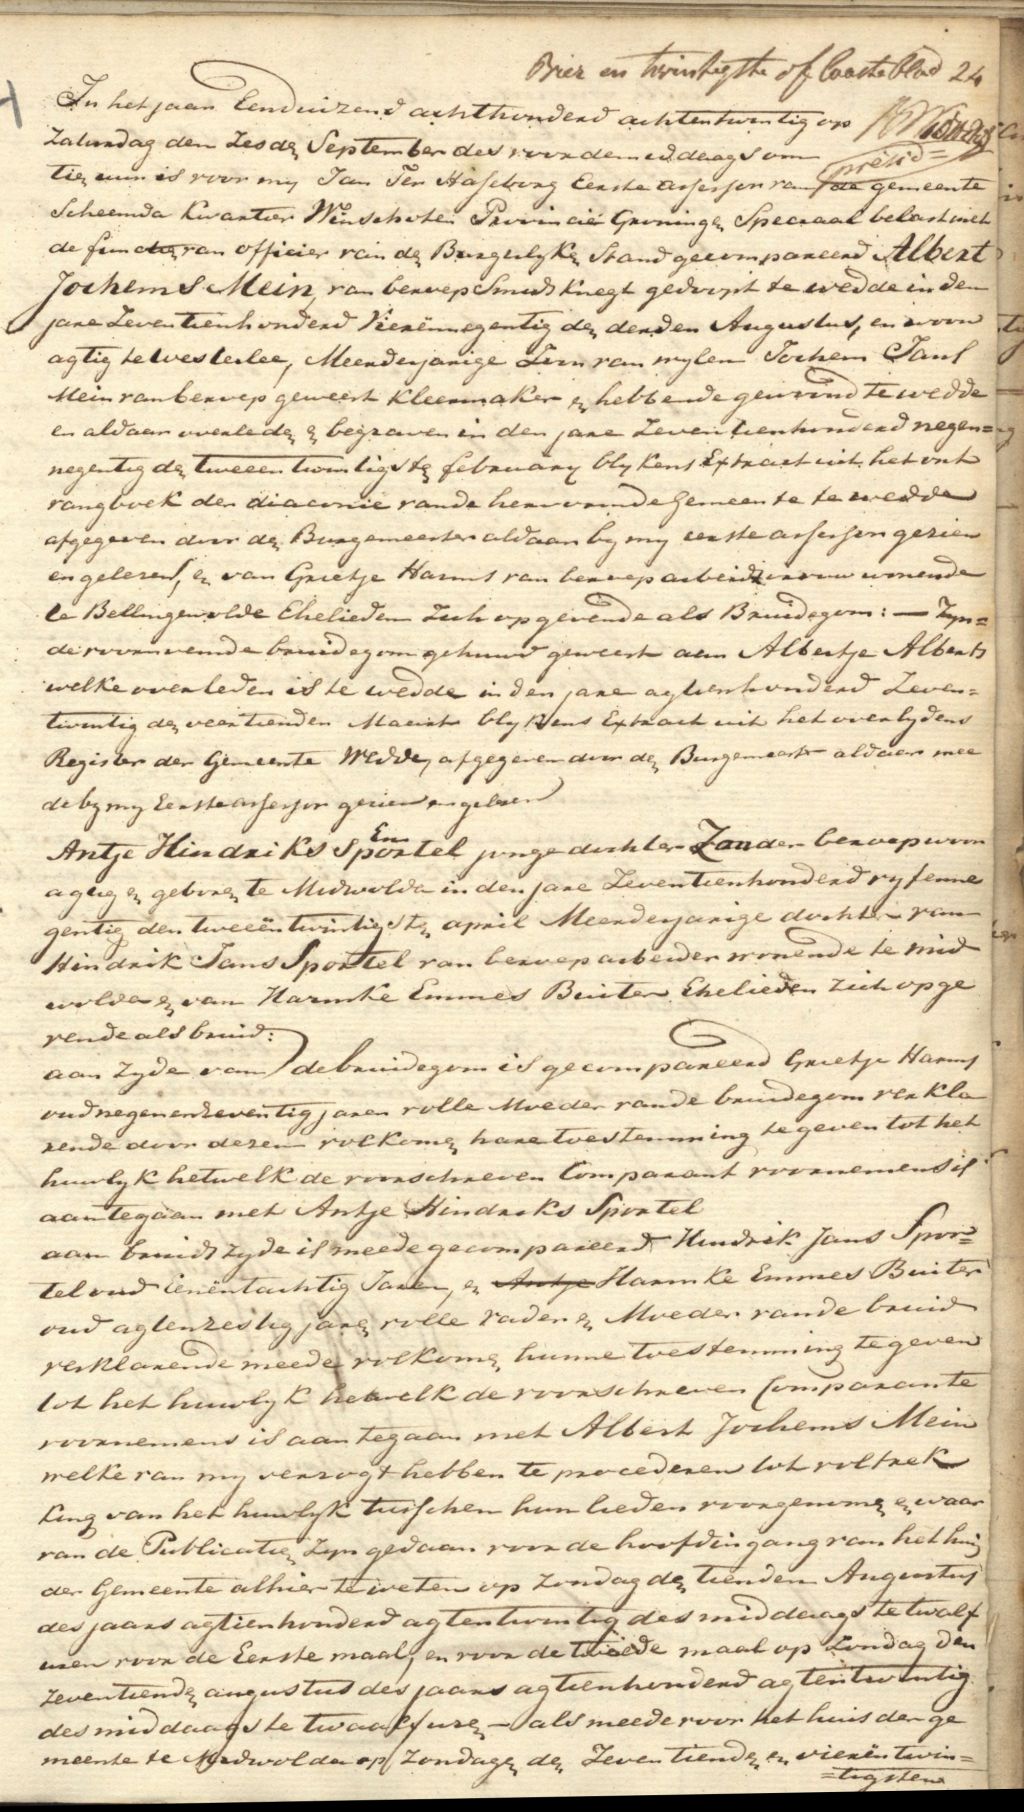 Drier en twintigste of laaste blad 24
In het jaar Eenduizend achthonderd achtentwintig op
présid=
Zaturdag den Zesden September des voordemiddaags om
tien uur is voor my Jan Ter Haseborg Eerste assessor van de gemeente
Scheemda Kwartier Winschoten Provincie Groningen Speciaal belast met
de functien van officier van den Burgerlyken Stand gecompareerd Albert
Jochems Mein, van beroep Smids Knegt gedoopt te wedde in den
jare Zeventienhonderd Vierënnegentig den derden Augustus, en woon
agtig te westerlee, Meerderjarige Zoon van wylen Jochem Jans
Mein van beroep geweest kleermaker en hebbende gewoond te wedde
en aldaar overleden en begraven in den jare Zeventienhonderd negen=
negentig den tweeentwintigsten february blykens Extract uit het ont
vangboek der diaconie van de hervormde Gemeente te wedde
afgegeven door den Burgemeester aldaar by my eerste assessor gezien
en gelezen, en van Grietje Harms van beroep arbeidsvrouw wonende
te Bellingwolde Ehelieden Zich opgevende als Bruidegom: — Zyn=
de voornoemde bruidegom gehuwd geweest aan Albertje Alberts
welke overleden is te wedde in den jare agtienhonderd Zeven=
twintig den veertienden Maart blykens Extract uit het overlydens
Register der Gemeente Wedde, afgegeven door den Burgemeester aldaar mee
de by my Eerste assessor gezien en gelezen
En
Antje Hindriks Sportel jonge dochter Zonder beroep woon
agtig en geboren te Midwolda in den jare Zeventienhonderd vyfenne
gentig den tweeëntwintigsten april Meerderjarige dochter van
Hindrik Jans Sportel van beroep arbeider wonende te mid
wolda en van Harmke Emmes Buiter Ehelieden Zich opge
vende als bruid:
aan Zyde van de bruidegom is gecompareerd Grietje Harms
oud negenenzeventig jaren volle Moeder van de bruidegom verkla
rende door dezen volkomen hare toestemming te geven tot het
huwlyk hetwelk de voorschreven Comparant voornemens is
aantegaan met Antje Hindriks Sportel
aan bruids Zyde is meede gecompareerd Hindrik Jans Spor=
tel oud Eenëntachtig Jaren, en Antje Harmke Emmes Buiter
oud agtenzestig jaren volle Vader en Moeder van de bruid
verklarende meede volkomen hunne toestemming te geven
tot het huwlyk hetwelk de voorschreven Comparante
voornemens is aantegaan met Albert Jochems Mein
welke van my verzogt hebben te procederen tot voltrek
king van het huwlyk tusschen hun lieden voorgenomen en waar
van de Publicatien Zyn gedaan voor de hoofdingang van het huis
der Gemeente alhier te weten op Zondag den tienden Augustus
des jaars agtienhonderd agtentwintig des middaags te twalf
uren voor de Eerste maal, en voor de tweede maal op Zondag den
Zeventienden augustus des jaars agtienhonderd agtentwintig
des middaags te twaalf uren — als meede voor het huis der ge
meente te Midwolda op Zondagen den Zeventienden en vierëntwin=
=tigsten